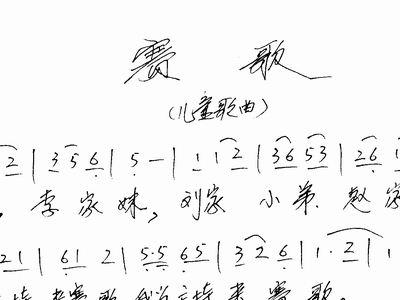 赛 歌
(儿童歌曲)
2 | 3 5 6 | 5 — | 1 1 2 | 36 53 | 26 1
, 李 家 妹, 刘家 小 弟. 赵 家
21 | 61 2 | 5·5 65 | 3 2 6 | 1· 2 | 1
来 赛 歌 来 赛 歌